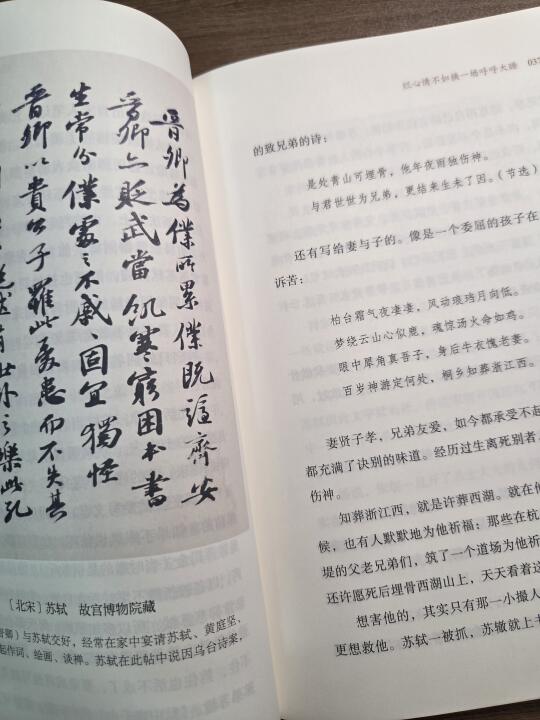 晋卿為僕所累僕既謫齊安
晋卿亦貶武當飢寒窮困本書
生常分僕處之不戚〻固宜獨怪
晋卿以貴公子罹此憂患而不失其
有世外之樂此孔
〔北宋〕苏轼 故宫博物院藏
晋卿）与苏轼交好，经常在家中宴请苏轼、黄庭坚、
起作词、绘画、谈禅。苏轼在此帖中说因乌台诗案，
心情不如换一场呼呼大睡 037
的致兄弟的诗：
是处青山可埋骨，他年夜雨独伤神。
与君世世为兄弟，更结来生未了因。（节选）
还有写给妻与子的。像是一个委屈的孩子在
诉苦：
柏台霜气夜凄凄，风动琅珰月向低。
梦绕云山心似鹿，魂惊汤火命如鸡。
眼中犀角真吾子，身后牛衣愧老妻。
百岁神游定何处，桐乡知葬浙江西。
妻贤子孝，兄弟友爱，如今都承受不起
都充满了诀别的味道。经历过生离死别者，
伤神。
知葬浙江西，就是许葬西湖。就在他
候，也有人默默地为他祈福；那些在杭
堤的父老兄弟们，筑了一个道场为他祈
还许愿死后埋骨西湖山上，天天看着这
想害他的，其实只有那一小撮人
更想救他。苏轼一被抓，苏辙就上书